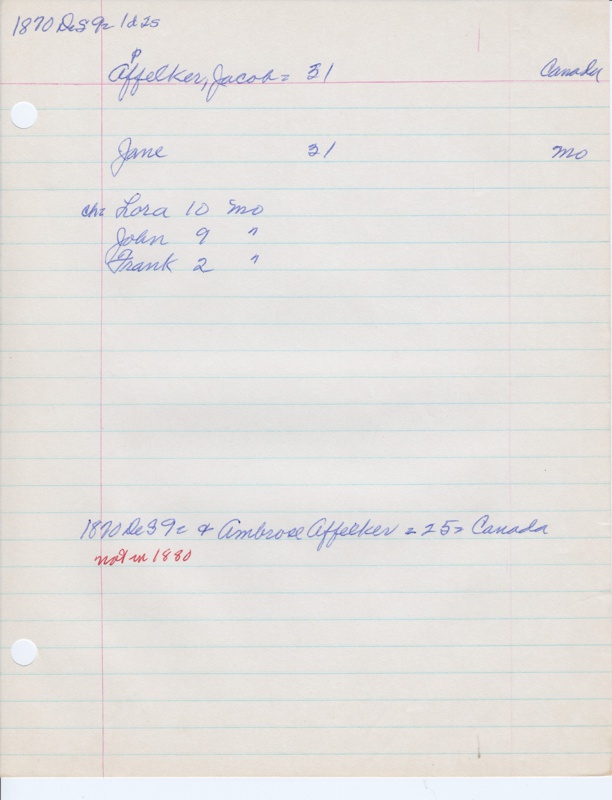 1870 DeS 92 1d25
p
Affelker, Jacob = 31 Canada
Jane 31 mo
ch= Lora 10 mo
John 9 "
Frank 2 "
1870 DeS 92 & Ambrose Affelker = 25 = Canada
not in 1880